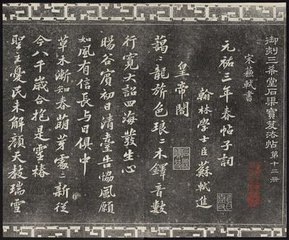 御刻三希堂石渠寶笈法帖第十三冊
宋蘇軾書
元祐三年春帖子詞
翰林學士臣蘇軾進
皇帝閣
藹藹龍旂色琅琅木鐸音數
行寬大詔四海發生心
暘谷賓初日清臺告協風願
如風有信長與日俱中
草木漸知春萌芽處處新從
今八千歲合抱是靈椿
聖主憂民未解顏天教瑞雪